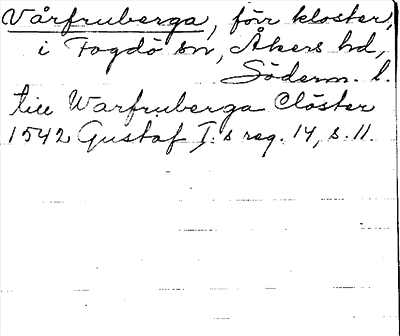 Vårfruberga, förr kloster,
i Fogdö sn, Åkers hd,
Söderm. l.
till Warfruberga Clöster
1542 Gustaf I:s reg. 14, s. 11.